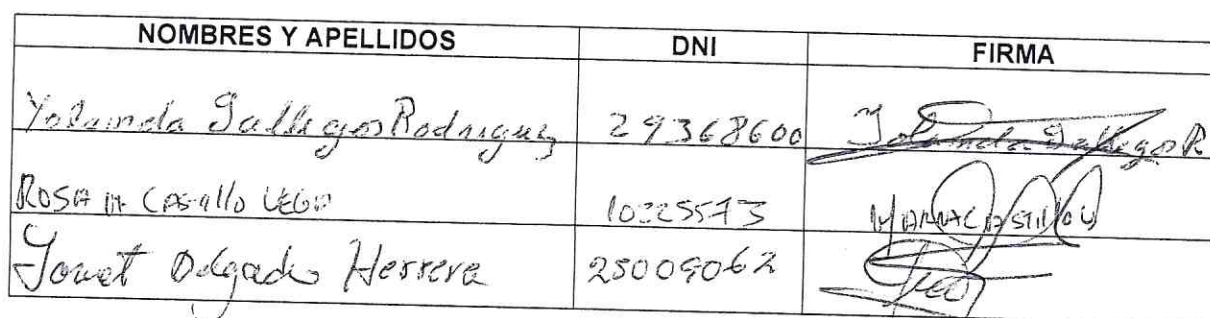 NOMBRES Y APELLIDOS DNI FIRMA
Yolanda Gallegos Rodriguez 29368600 Yolanda Gallegos R
ROSA M CASTILLO VEGA 10225573
Janet Delgado Herrera 25009062